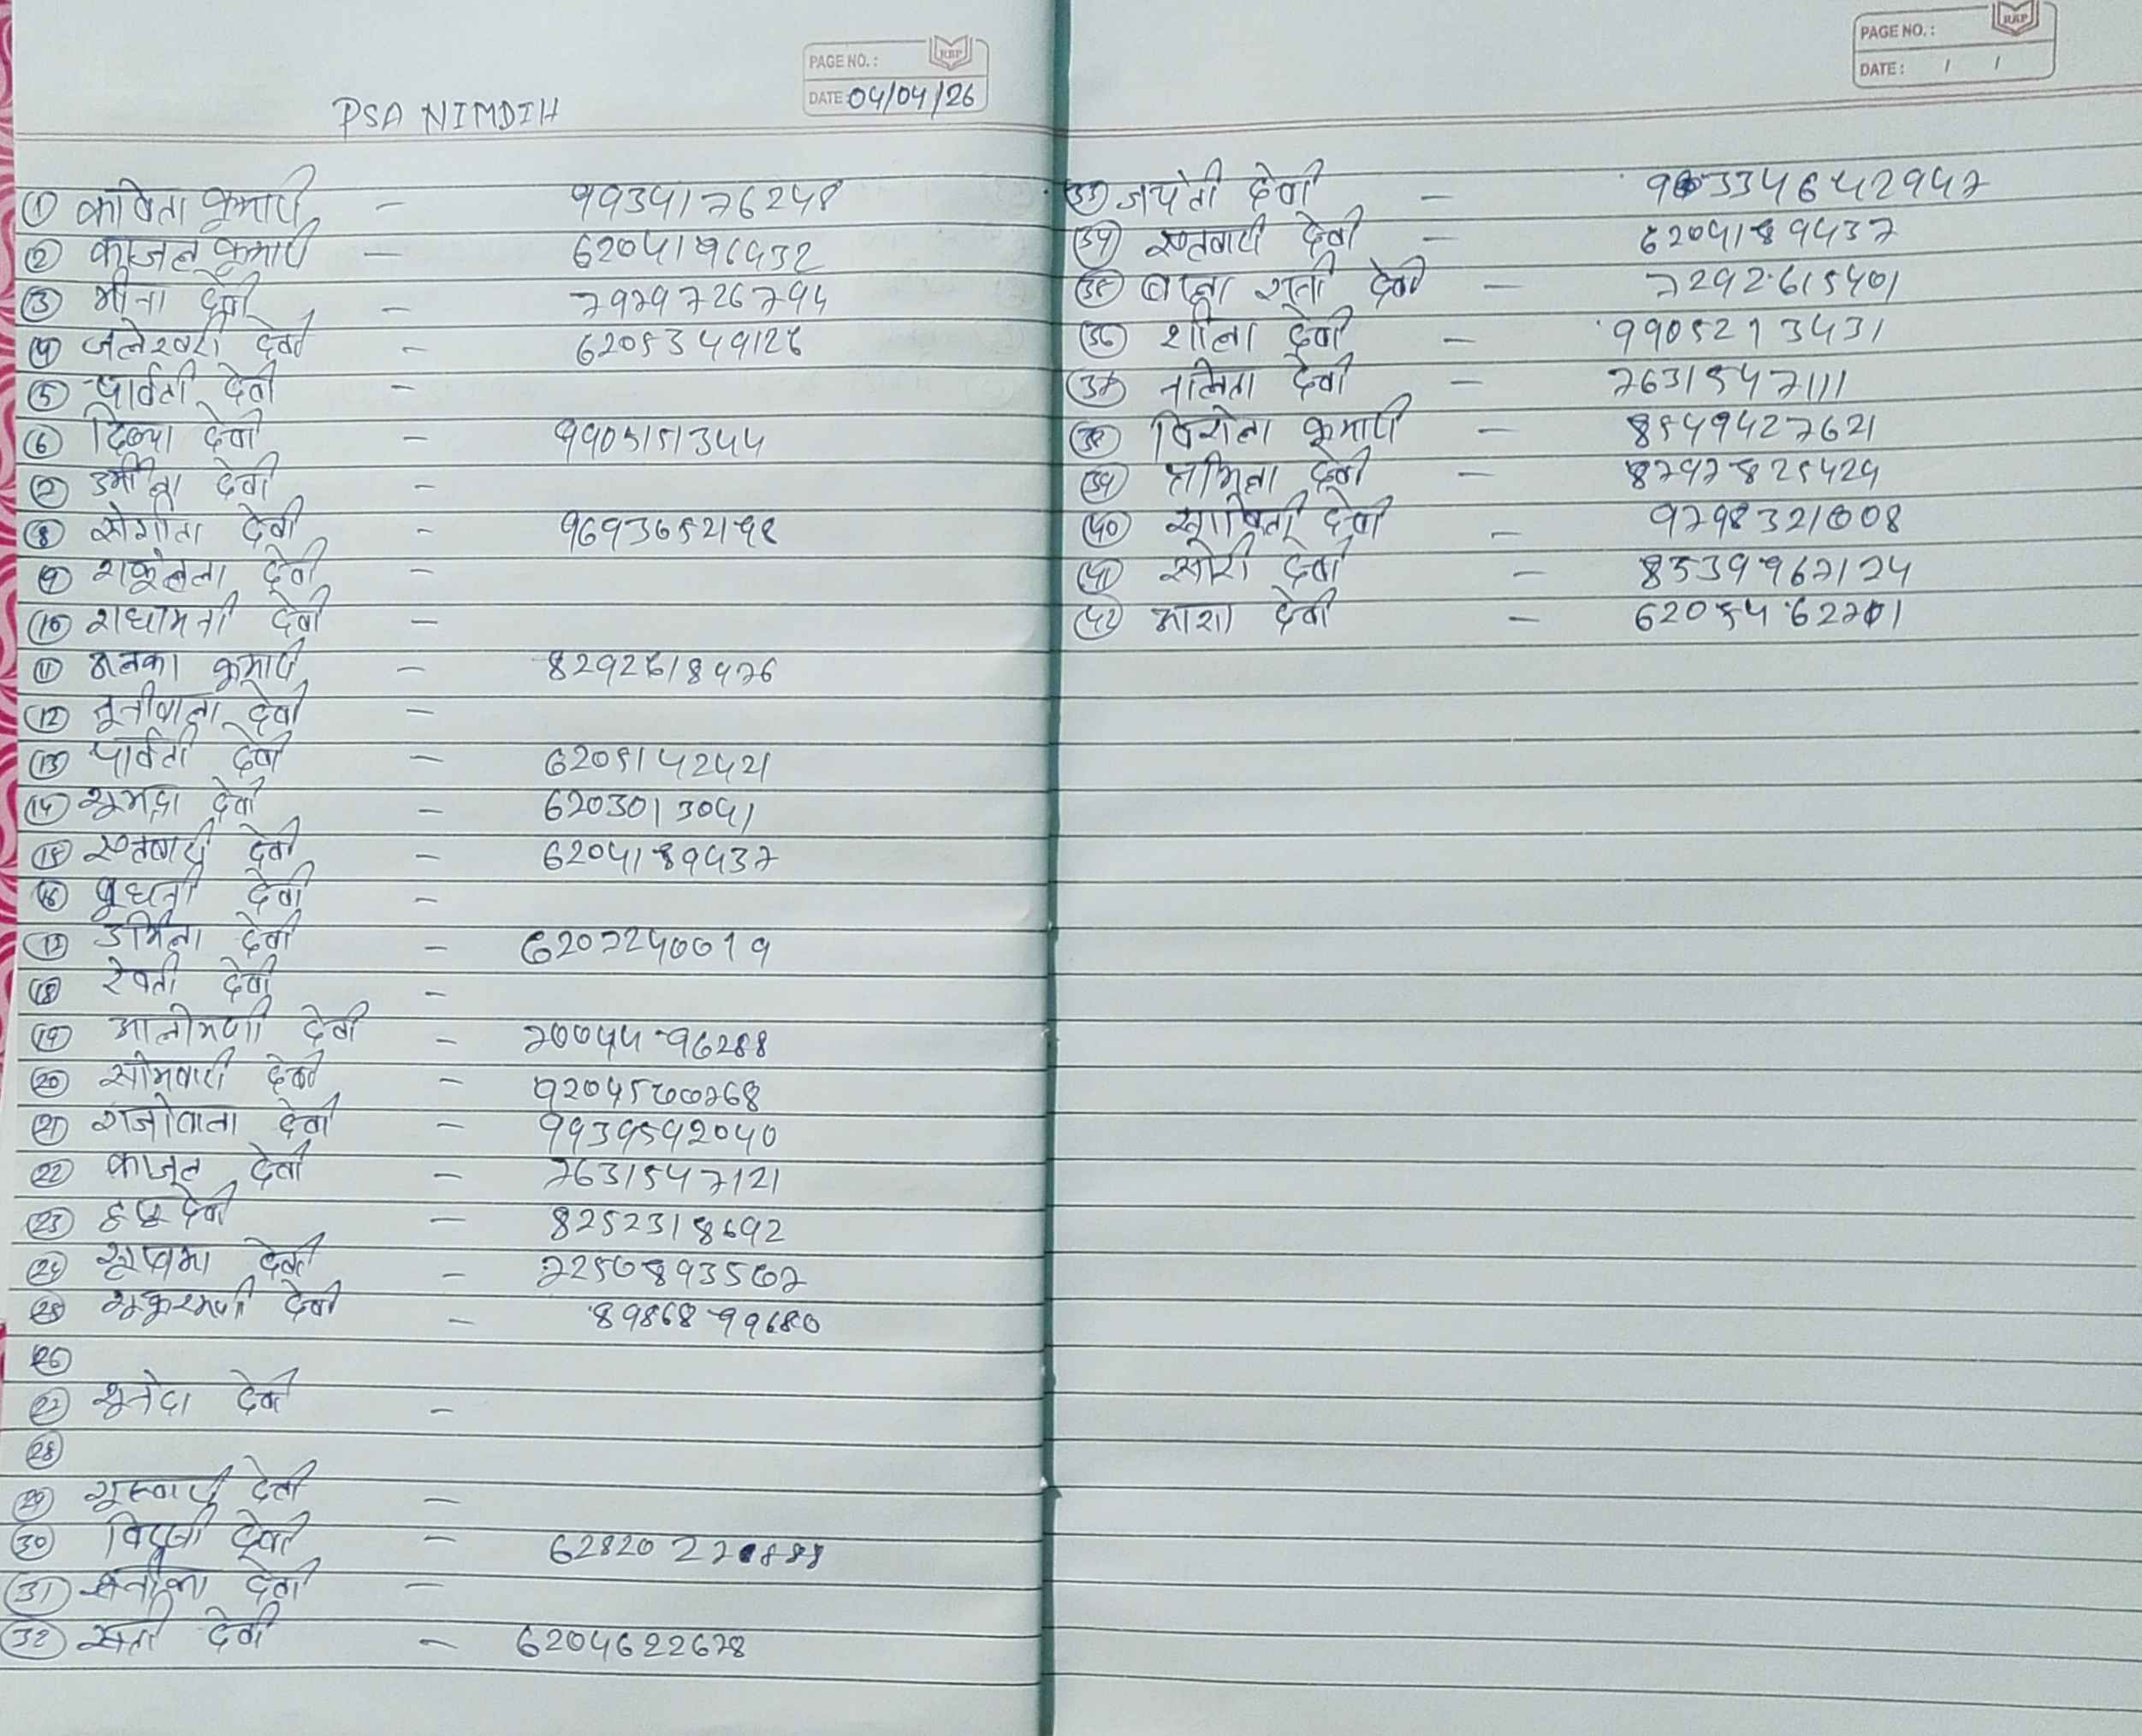 PAGE NO. :
RBP
DATE: 04/04/26
PSA NIMDIH
① कविता कुमारी - 9934176248
② काजल कुमारी - 6204196432
③ मीना देवी - 7979726794
④ जलेश्वरी देवी - 6205349126
⑤ पार्वती देवी -
⑥ दिव्या देवी - 9905151344
⑦ उर्मीला देवी -
⑧ संगीता देवी - 9693652198
⑨ शकुंतला देवी -
⑩ राधामनी देवी -
⑪ अलका कुमारी - 8292618476
⑫ देवी -
⑬ पार्वती देवी - 6205142421
⑭ शुभद्रा देवी - 6203013041
⑮ देवी - 6204189437
⑯ बुधनी देवी -
⑰ उर्मिला देवी - 6207240019
⑱ रेवती देवी -
⑲ देवी - 7004496288
⑳ सोमवारी देवी - 9204500768
㉑ देवी - 9939592040
㉒ काजल देवी - 7631547121
㉓ देवी - 8252318692
㉔ देवी - 7250893507
㉕ देवी - 8986899680
㉖
㉗ देवी -
㉘
㉙ देवी -
㉚ देवी -
㉛ देवी -
㉜ सती देवी - 6204622678
PAGE NO. :
RBP
DATE : / /
㉝ जयंती देवी -
㉞ देवी - 6204189437
㉟ देवी - 7292615401
㊱ शीला देवी - 9905213431
㊲ नमिता देवी - 7631547111
㊳ कुमारी - 8549427621
㊴ देवी - 8797825424
㊵ देवी - 9798321008
㊶ देवी - 8539967124
㊷ आशा देवी - 6205462701